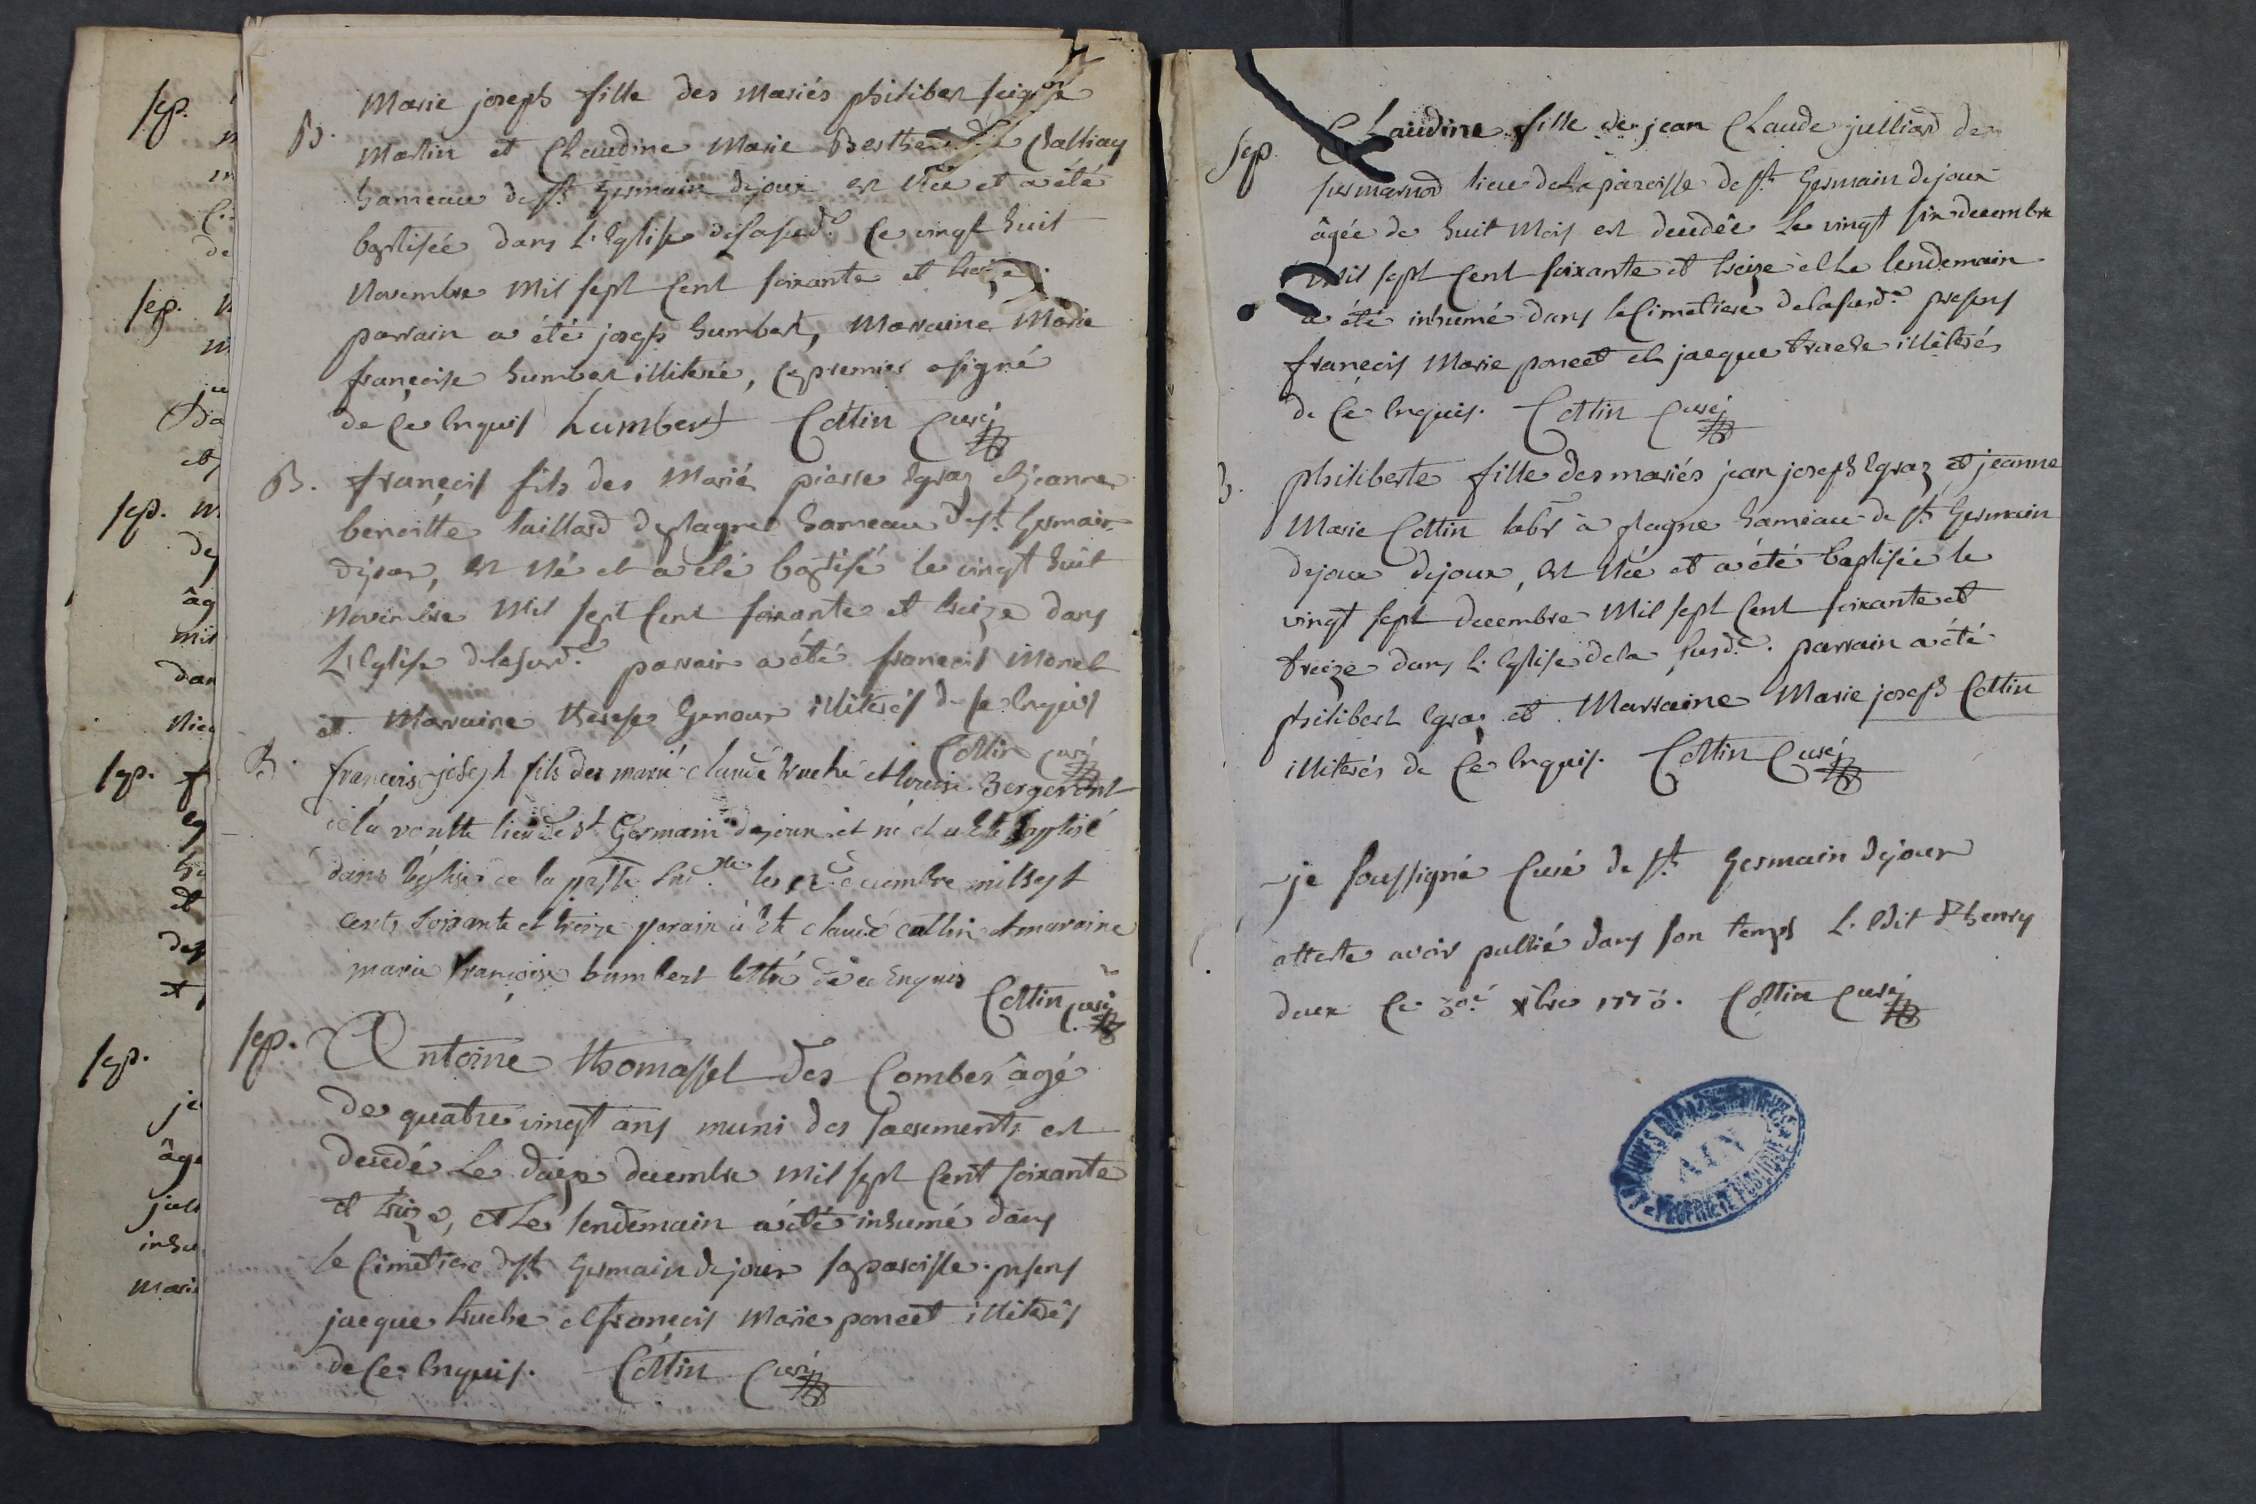 B. Marie joseph fille des mariés philibert
Martin et Claudine Marie Berthet de Challiay
hameau de st. Germain dejoux est née et a été
baptisée dans L'Eglise de la susd.e Ce vingt huit
Novembre mil sept Cent soixante et treize
parrain a été joseph humbert, Marraine Marie
françoise humbert illiterée, Le premier a signé
de Ce Enquis humbert Cottin Curé
B. françois fils des Marié pierre Egraz et jeanne
benoitte taillard de plagne hameau de st. Germain
dejoux, est né et a été baptisé le vingt huit
Novembre Mil sept Cent soixante et treize dans
L'Eglise de la susd.e parrain a été françois Morel
et Marraine therese Genoux illiterés de Ce Enquis
Cottin Curé
B. francois joseph fils des marié claude truche et louise Bergeront
de la voutte lieu de st Germain dejoux est né et a Eté baptisé
dans léglise de la ditte le decembre mil sept
cents soixante et treize parain a Eté claude cottin et maraine
marie françoise humbert lettré de ce Enquis
Cottin Curé
sep. Antoine thomasset des Combes âgé
de quatre vingt ans muni des sacrements est
decedé Le douze decembre mil sept Cent soixante
et treize, et Le lendemain a été inhumé dans
le Cimetiere de st Germain dejoux sa paroisse. presens
jacque truche et françois Marie poncet illiterés
de Ce Enquis. Cottin Curé
sep. Claudine fille de jean Claude julliard de
sermarnod lieu de La paroisse de st. Germain dejoux
âgée de huit Mois est decedée Le vingt six decembre
mil sept Cent soixante et treize et Le lendemain
a été inhumé dans le Cimetiere de la susd.e presens
françois Marie poncet et jacque truche illiterés
de Ce Enquis. Cottin Curé
B. philiberte fille des mariés jean joseph Egraz et jeanne
Marie Cottin labr à plagne hameau de st. Germain
dejoux dejoux, est née et a été baptisée le
vingt sept decembre Mil sept Cent soixante et
treize dans L'Eglise de la susd.e. parrain a été
philibert Egraz et Marraine Marie joseph Cottin
illiterés de Ce Enquis. Cottin Curé
je soussigné Curé de st. Germain dejoux
atteste avoir publié dans son temps L'Edit d'henry
deux Ce 30e xbre 1773. Cottin Curé
ARCHIVES DÉPARTEMENTALES
AIN
PROPRIÉTÉ PUBLIQUE
sep.
sep.
sep.
sep.
sep.